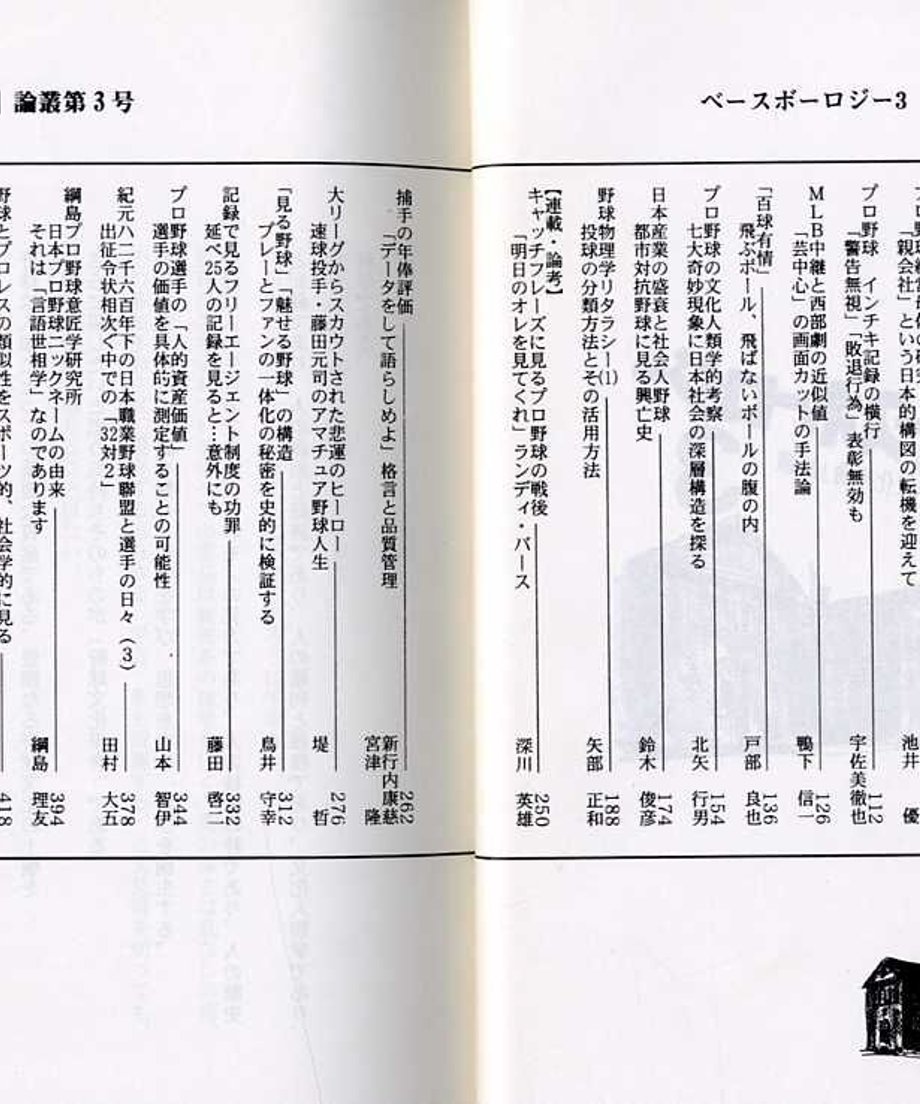 ベースボーロジー3
論叢第3号
「親会社」という日本的構図の転機を迎えて
池井 優
プロ野球 インチキ記録の横行
「警告無視」「敗退行為」表彰無効も
宇佐美徹也
112
MLB中継と西部劇の近似値
「芸中心」の画面カットの手法論
鴨下 信一
126
「百球有情」
飛ぶボール、飛ばないボールの腹の内
戸部 良也
136
プロ野球の文化人類学的考察
七大奇妙現象に日本社会の深層構造を探る
北矢 行男
154
日本産業の盛衰と社会人野球
都市対抗野球に見る興亡史
鈴木 俊彦
174
野球物理学リタラシー(1)
投球の分類方法とその活用方法
矢部 正和
188
【連載・論考】
キャッチフレーズに見るプロ野球の戦後
「明日のオレを見てくれ」ランディ・バース
深川 英雄
250
捕手の年俸評価
「データをして語らしめよ」格言と品質管理
新行内康慈
宮津 隆
262
大リーグからスカウトされた悲運のヒーロー
速球投手・藤田元司のアマチュア野球人生
堤 哲
276
「見る野球」「魅せる野球」の構造
プレーとファンの一体化の秘密を史的に検証する
鳥井 守幸
312
記録で見るフリーエージェント制度の功罪
延べ25人の記録を見ると…意外にも
藤田 啓二
332
プロ野球選手の「人的資産価値」
選手の価値を具体的に測定することの可能性
山本 智伊
344
紀元ハ二千六百年下の日本職業野球聯盟と選手の日々(3)
出征令状相次ぐ中での「32対2」
田村 大五
378
綱島プロ野球意匠学研究所
日本プロ野球ニックネームの由来
それは「言語世相学」なのであります
綱島 理友
394
野球とプロレスの類似性をスポーツ的、社会学的に見る
418